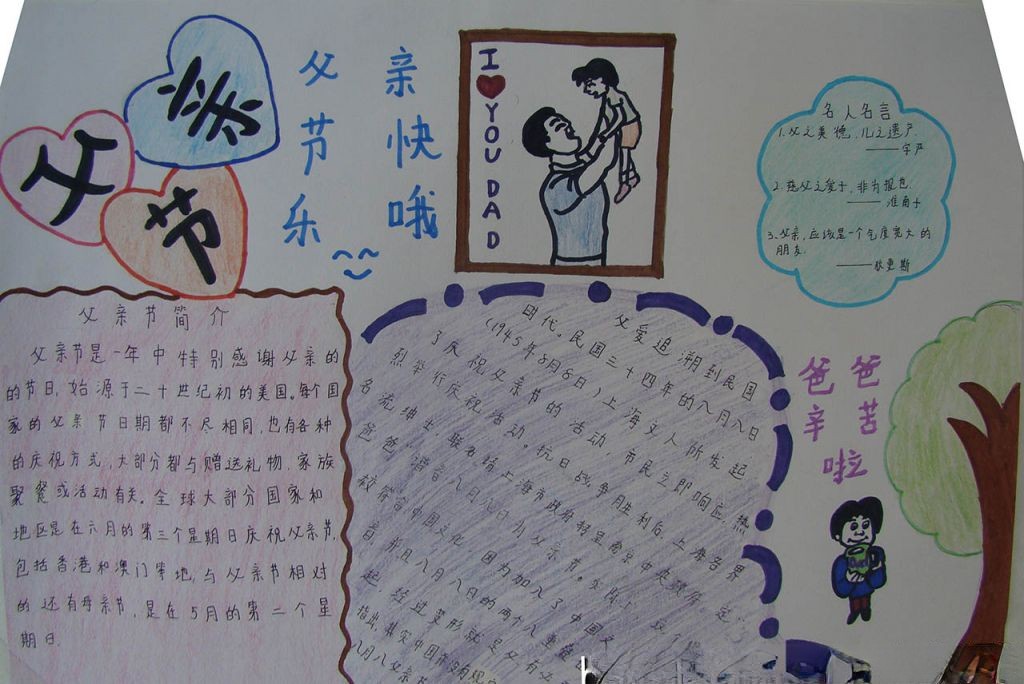 父
亲
节
父亲
节快
乐哦
I
YOU DAD
名人名言
1.父之美德,儿之遗产.
——字严
2.慈父之爱子,非为报也.
——淮南子
3.父亲,应该是一个气度宽大的
朋友.
——狄更斯
父亲节简介
父亲节是一年中特别感谢父亲的
的节日,始源于二十世纪初的美国。每个国
家的父亲节日期都不尽相同,也有各种
的庆祝方式,大部分都与赠送礼物,家族
聚餐或活动有关。全球大部分国家和
地区是在六月的第三个星期日庆祝父亲节,
包括香港和澳门等地,与父亲节相对
的还有母亲节,是在5月的第二个星
期日.
父爱追溯到民国
时代。民国三十四年的八月八日
(1945年8月8日)上海文人所发起
了庆祝父亲节的活动 市民立即响应,热
烈举行庆祝活动。抗日战争胜利后,上海各界
名流绅士,联名请上海市政府转呈南京中央政府,定
爸爸 谐音八月八日为父亲节。
中国文化,因为加入了中国文
音,并且八月八日的两个八重叠
起,经过变形就是父
指出,其实中国
八月八父亲节
爸爸
辛苦
啦